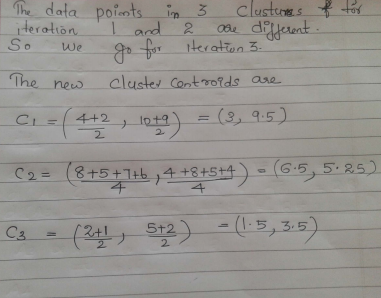 The data points in 3 Clusturs for
iteration 1 and 2 are different.
So we go for iteration 3.
The new cluster centroids are
C1 = (4+2/2, 10+9/2) = (3, 9.5)
C2 = (8+5+7+6/4, 4+8+5+4/4) = (6.5, 5.25)
C3 = (2+1/2, 5+2/2) = (1.5, 3.5)